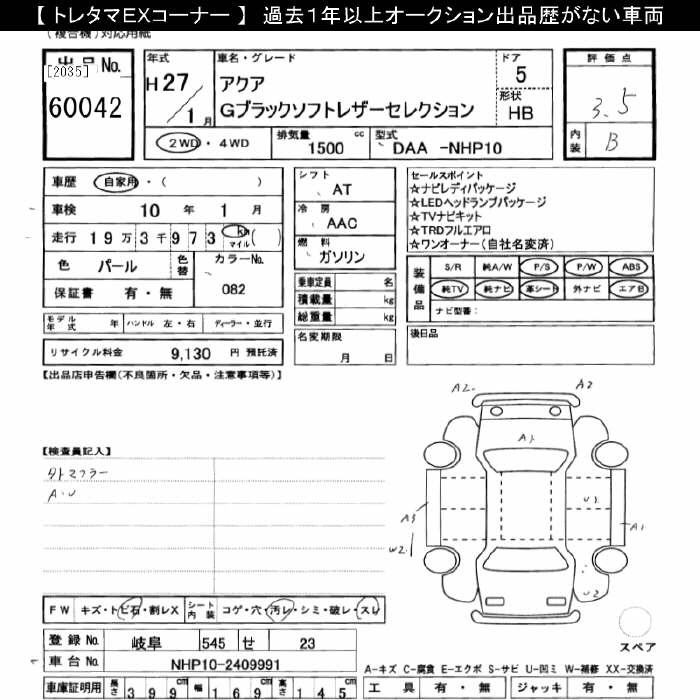 【トレタマEXコーナー】 過去1年以上オークション出品歴がない車両
(複合機)対応用紙
出品No.
[2035]
60042
年式
H 27/1月
車名・グレード
アクア
Gブラックソフトレザーセレクション
ドア
5
形状
HB
2WD・4WD
排気量
1500 cc
型式
DAA -NHP10
評価点
3.5
内装
B
車歴 自家用・( )
車検 10年 1月
走行 19万3千973 km マイル( )
色 パール 色替 カラーNo. 082
保証書 有・無
モデル年式 年 ハンドル 左・右 ディーラー・並行
リサイクル料金 9,130 円 預託済
シフト
AT
冷房
AAC
燃料
ガソリン
乗車定員 名
積載量 kg
総重量 kg
名変期限
月 日
セールスポイント
☆ナビレディパッケージ
☆LEDヘッドランプパッケージ
☆TVナビキット
☆TRDフルエアロ
☆ワンオーナー(自社名変済)
装備品
S/R 純A/W P/S P/W ABS
純TV 純ナビ 革シート 外ナビ エアB
ナビ型番:
後日品
【出品店申告欄(不良箇所・欠品・注意事項等)】
【検査員記入】
外マフラー
A・U
A2 A2
A1
A3 U2 A1
W2
U2
スペア
FW キズ・トビ石・割レX シート内装 コゲ・穴・汚レ・シミ・破レ・スレ
登録No. 岐阜 545 せ 23
車台No. NHP10-2409991
車庫証明用 長さ 399cm 幅 169cm 高さ 145cm
A-キズ C-腐食 E-エクボ S-サビ U-凹ミ W-補修 XX-交換済
工具 有・無 ジャッキ 有・無